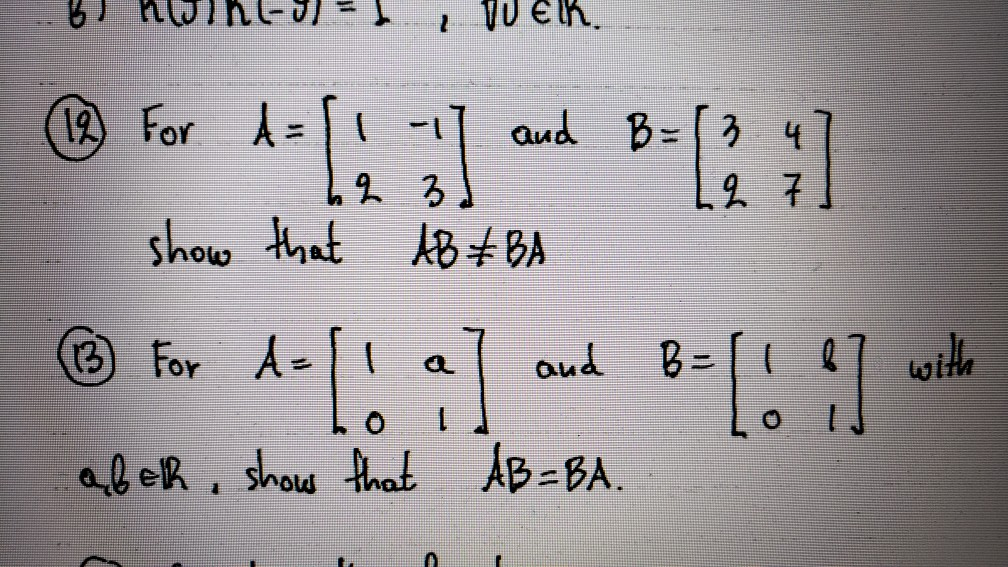 (12) For A = [1 -1; 2 3] and B = [3 4; 2 7]
show that AB ≠ BA
(13) For A = [1 a; 0 1] and B = [1 b; 0 1] with
a,b ∈ ℝ, show that AB = BA.